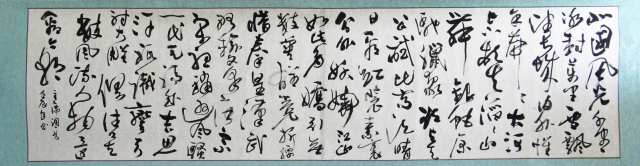 北国风光千里
冰封万里雪飘
望长城内外惟
余莽莽大河
上下顿失滔滔山
舞银蛇原
驰蜡象欲与天
公试比高须晴
日看红装素裹
分外妖娆江山
如此多娇引无
数英雄竞折腰
惜秦皇汉武
略输文采唐宗
宋祖稍逊风骚
一代天骄成吉思
汗只识弯弓
射大雕俱往矣
数风流人物还
看今朝